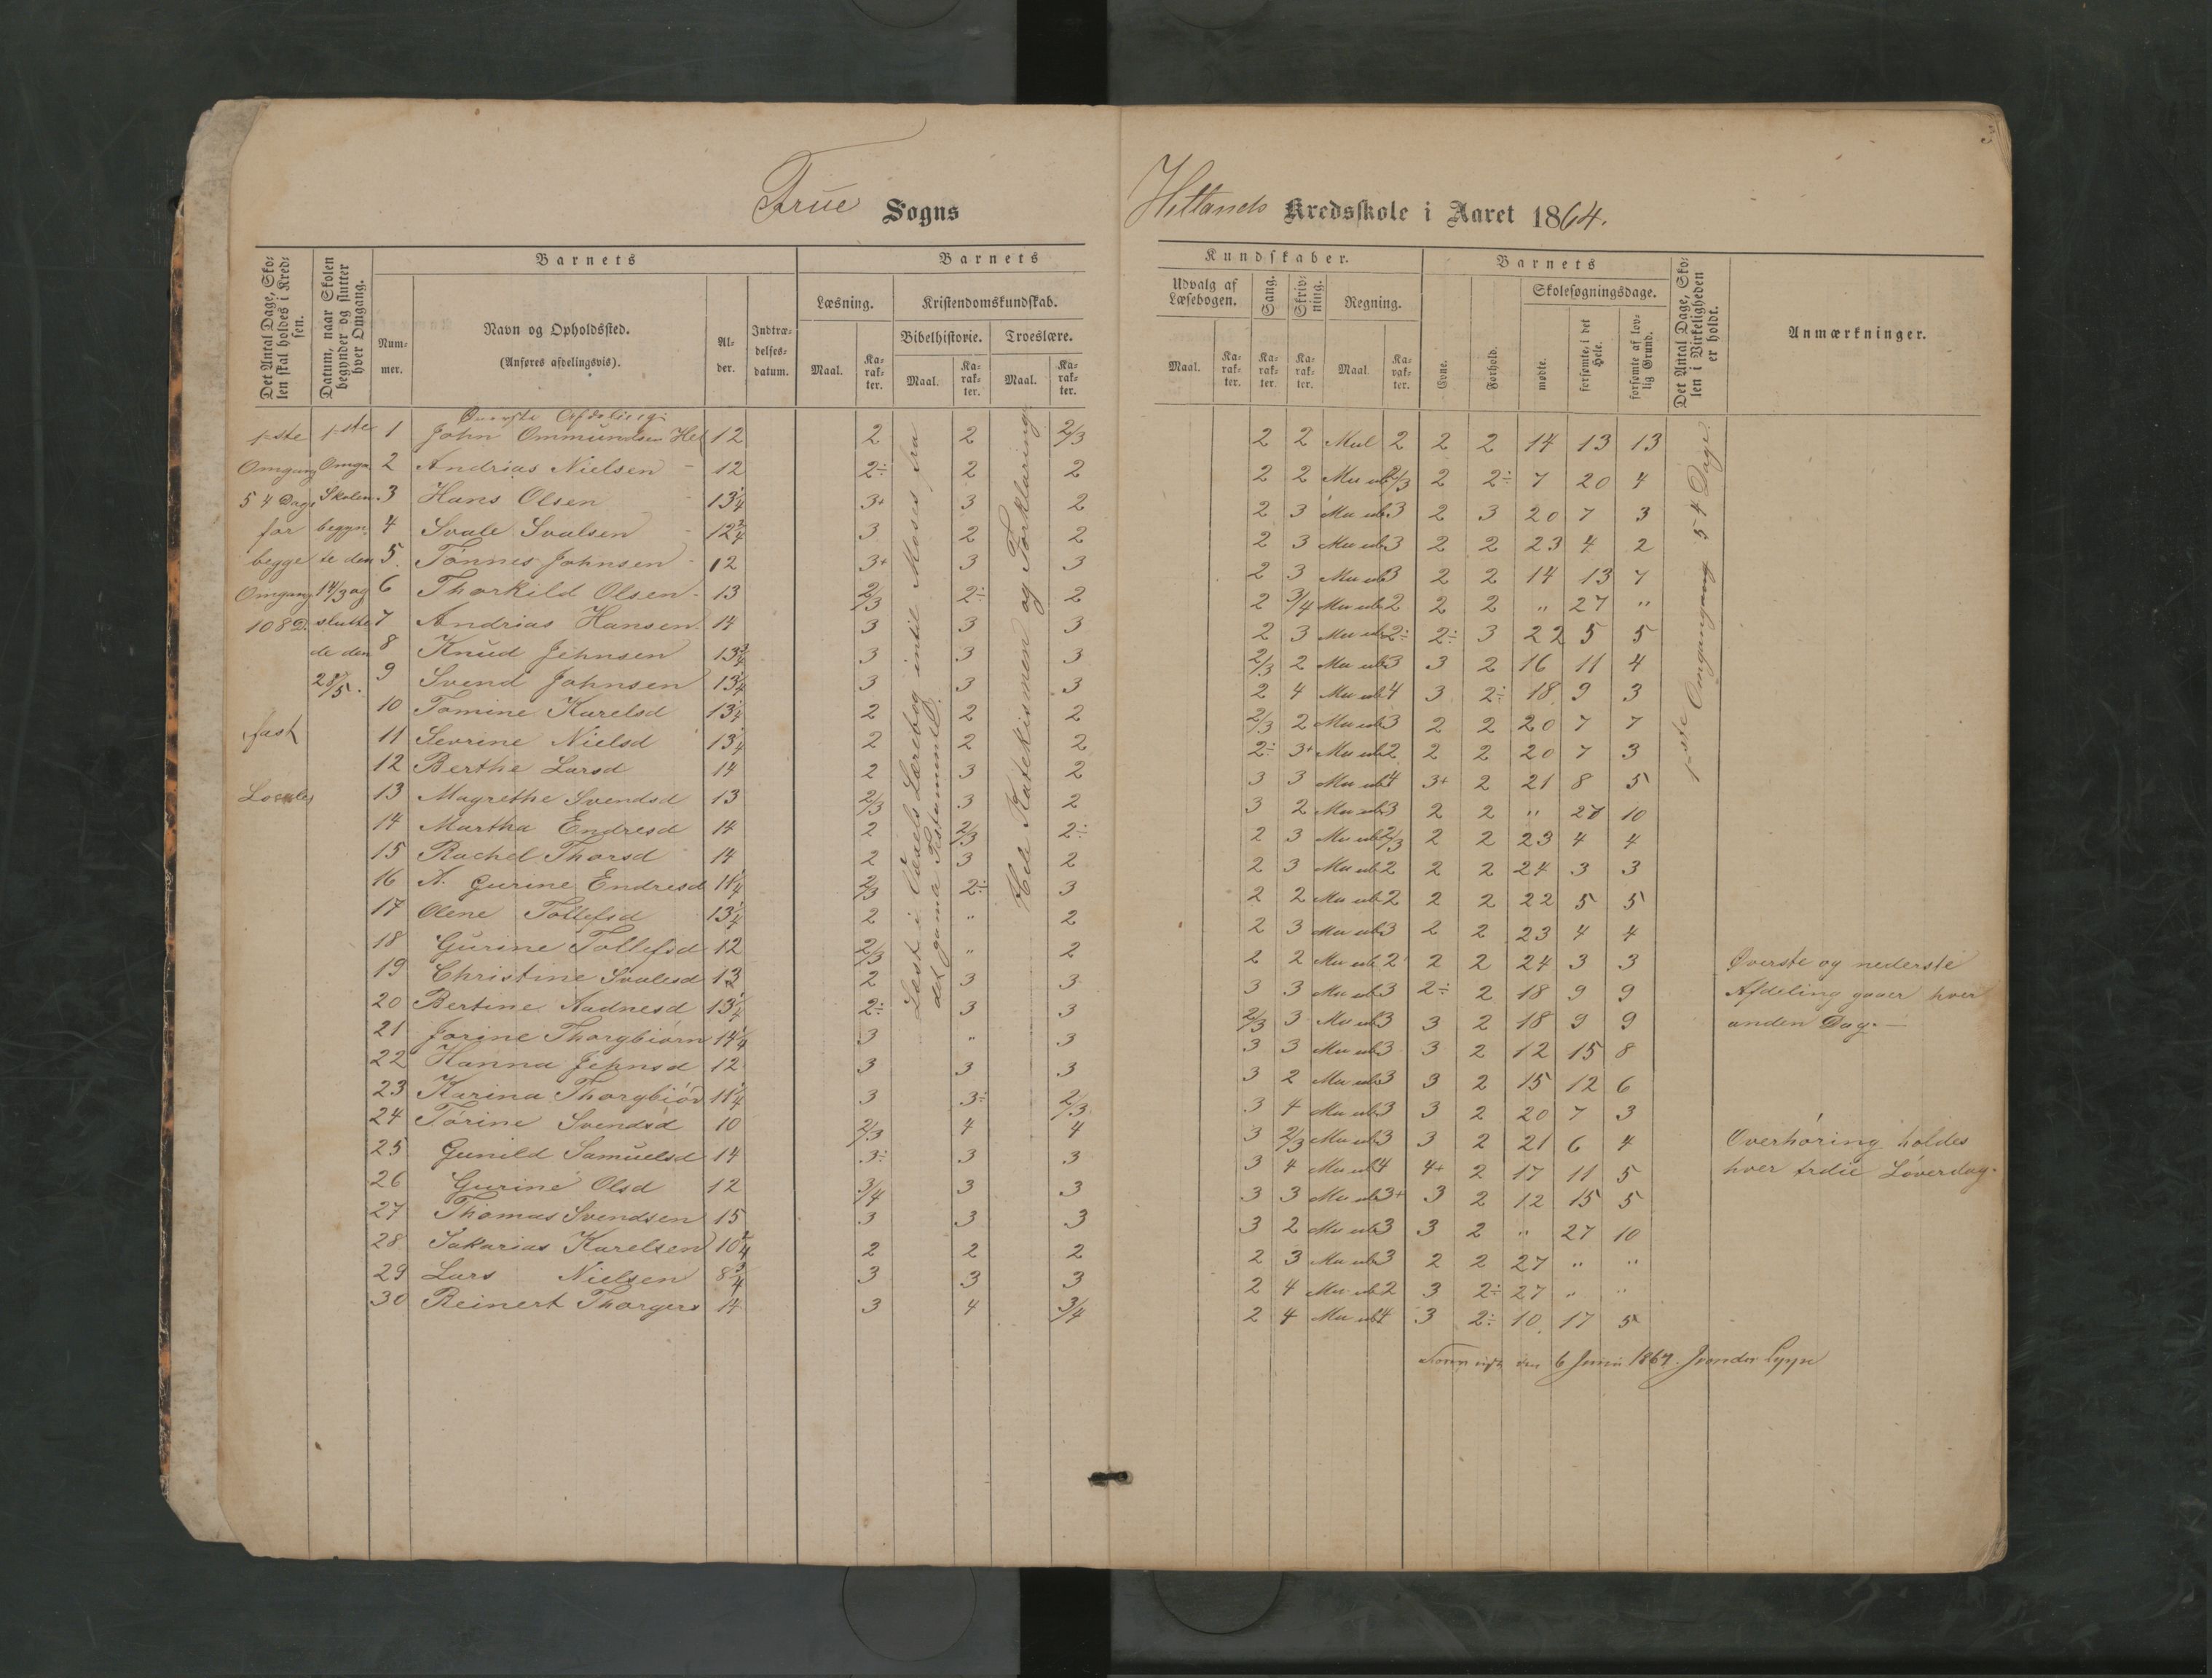 Frue Sogns
Hetlands Kredsskole i Aaret 1864.
3
Det Antal Dage, Sko-
len skal holdes i Kred-
sen.
Datum, naar Skolen
begynder og slutter
hver Omgang.
Barnets
Num-
mer.
Navn og Opholdssted.
(Anføres afdelingsvis).
Al-
der.
Indtræ-
delses-
datum.
Barnets
Læsning.
Kristendomskundskab.
Bibelhistorie.
Troeslære.
Maal.
Ka-
rak-
ter.
Maal.
Ka-
rak-
ter.
Maal.
Ka-
rak-
ter.
Kundskaber.
Udvalg af
Læsebogen.
Sang.
Skriv-
ning.
Regning.
Maal.
Ka-
rak-
ter.
Ka-
rak-
ter.
Ka-
rak-
ter.
Maal.
Ka-
rak-
ter.
Barnets
Evne.
Forhold.
Skolesøgningsdage.
mødte.
forsømte, i det
Hele.
forsømte af lov-
lig Grund.
Det Antal Dage, Sko-
len i Virkeligheden
er holdt.
Anmærkninger.
1-ste
Omgang
54 Dage
for
begge
Omgang
108 D.
fast
Locale
1-ste
Omgn.
Skolen
begyn
te den
14/3 og
slutte
de den
28/5.
Øverste Afdeling:
1 John Ommundsen Het 12 2 2 2/3 2 2 Mul 2 2 2 14 13 13
2 Andrias Nielsen - 12 2÷ 2 2 2 2 Mu ub 2/3 2 2÷ 7 20 4
3 Hans Olsen 13 1/4 3+ 3 2 2 3 Mu ub 3 2 3 20 7 3
4 Svale Svalsen - 12 3/4 3 2 2 2 3 Mu ub 3 2 2 23 4 2
5. Tønnes Johnsen - 12 3+ 3 3 2 3 Mu ub 3 2 2 14 13 7
6 Thorkild Olsen - 13 2/3 2÷ 2 2 3/4 Mu ub 2 2 2 " 27 "
7 Andrias Hansen. 14 3 3 3 2 3 Mu ub 2÷ 2÷ 3 22 5 5
8 Knud Jehnsen 13 3/4 3 3 3 2/3 2 Mu ub 3 3 2 16 11 4
9 Svend Johnsen 13 1/4 3 3 3 2 4 Mu ub 4 3 2÷ 18 9 3
10 Tomine Karelsd 13 1/4 2 2 2 2/3 2 Mu ub 3 2 2 20 7 7
11 Sevrine Nielsd 13 1/4 2 2 2 2÷ 3+ Mu ub 2 2 2 20 7 3
12 Berthe Larsd 14 2 3 2 3 3 Mu ub 4 3+ 2 21 8 5
13 Magrethe Svendsd 13 2/3 3 2 3 2 Mu ub 3 2 2 " 27 10
14 Martha Endresd 14 2 2/3 2÷ 2 3 Mu ub 2/3 2 2 23 4 4
15 Rachel Thorsd 14 2 3 2 2 3 Mu ub 2 2 2 24 3 3
16 A. Gurine Endresd 11 1/4 2/3 2÷ 3 2 2 Mu ub 2 2 2 22 5 5
17 Olene Tollefsd 13 1/4 2 " 2 2 3 Mu ub 3 2 2 23 4 4
18 Gurine Tollefsd 12 2/3 " 2 2 2 Mu ub 2 2 2 24 3 3
19 Christine Svalesd 13 2 3 3 3 3 Mu ub 3 2÷ 2 18 9 9
20 Bertine Aadnesd 13 1/4 2÷ 3 3 2/3 3 Mu ub 3 3 2 18 9 9
21 Jorine Thorgbiørn 14 1/4 3 " 3 3 3 Mu ub 3 3 2 12 15 8
22 Hanna Jehnsd 12 3 3 3 3 2 Mu ub 3 3 2 15 12 6
23 Karina Thorgbiør 11 1/4 3 3÷ 2/3 3 4 Mu ub 3 3 2 20 7 3
24 Torine Svendsd 10 2/3 4 4 3 2/3 Mu ub 3 3 2 21 6 4
25 Gunild Samuelsd 14 3÷ 3 3 3 4 Mu ub 4 4+ 2 17 11 5
26 Gurine Olsd 12 3/4 3 3 3 3 Mu ub 3+ 3 2 12 15 5
27 Thomas Svendsen 15 3 3 3 3 2 Mu ub 3 3 2 " 27 10
28 Sakarias Karelsen 10 3/4 2 2 2 2 3 Mu ub 3 2 2 27 " "
29 Lars Nielsen 8 3/4 3 3 3 2 4 Mu ub 2 3 2÷ 27 " "
30 Reinert Thorgers 14 3 4 3/4 2 4 Mu ub 4 3 2÷ 10 17 5
Læst i Væxels Lærebog indtil Moses fra
det gamla Testamente.
Hele Katekismen og Forklaring.
1-ste Omgang 54 Dage.
Øverste og nederste
Afdeling gaaer hver
anden Dag. —
Overhøring holdes
hver tredie Løverdag.
den 6 Juni 1864.